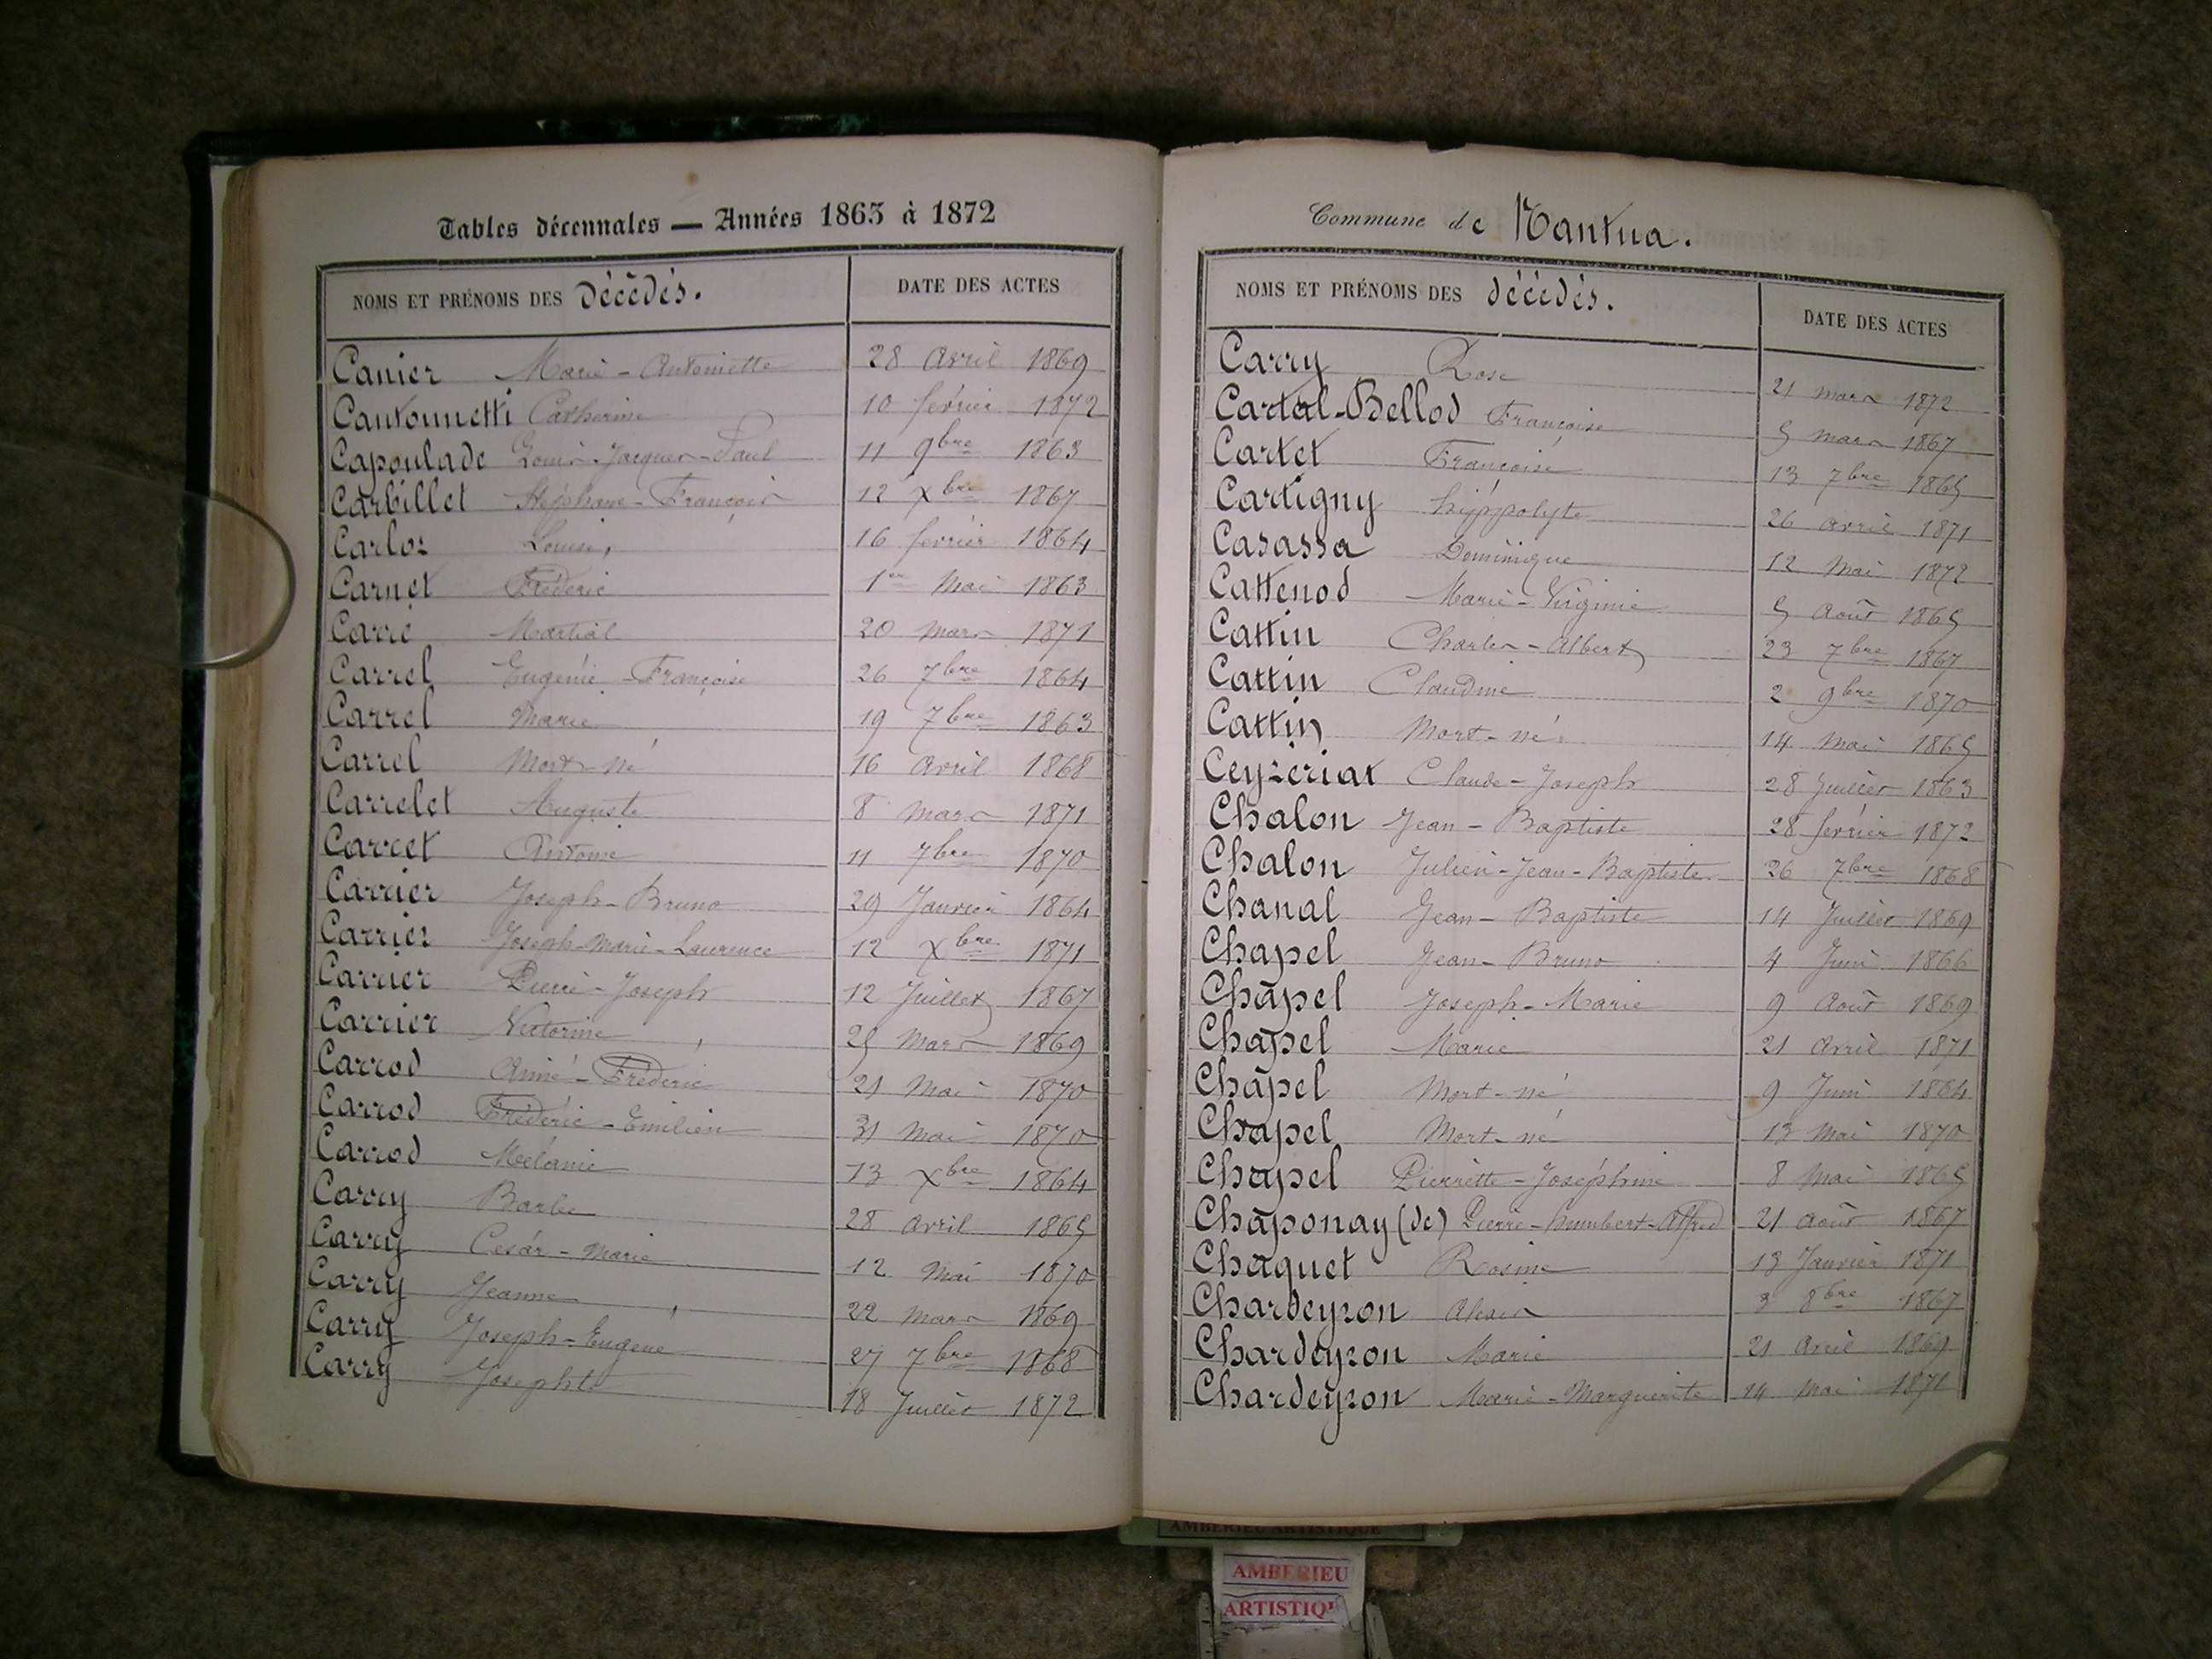 Tables décennales — Années 1863 à 1872
NOMS ET PRÉNOMS DES décédés. DATE DES ACTES
Canier Marie-Antoinette 28 avril 1869
Cantonnetti Catherine 10 février 1872
Capoulade Louis-Jacques-Paul 11 9bre 1863
Carbillet Stéphane-François 12 Xbre 1867
Carloz Louise 16 février 1864
Carnet Frédéric 1er Mai 1863
Carré Martial 20 mars 1871
Carrel Eugénie-Françoise 26 7bre 1864
Carrel Marie 19 7bre 1863
Carrel Mort-né 16 avril 1868
Carrelet Auguste 8 mars 1871
Carret Antoine 11 7bre 1870
Carrier Joseph-Bruno 29 Janvier 1864
Carrier Joseph-Marie-Laurence 12 Xbre 1871
Carrier Pierre-Joseph 12 Juillet 1867
Carrier Victorine 25 Mars 1869
Carrod Aimé-Fréderic 21 Mai 1870
Carrod Fréderic-Emilien 31 Mai 1870
Carrod Mélanie 13 Xbre 1864
Carry Barbe 28 avril 1865
Carry César-Marie 12 Mai 1870
Carry Jeanne 22 mars 1869
Carry Joseph-Eugène 27 7bre 1868
Carry Josephte 18 Juillet 1872
Commune de Nantua.
NOMS ET PRÉNOMS DES décédés. DATE DES ACTES
Carry Rose 21 mars 1872
Cartal-Bellod Françoise 5 mars 1867
Cartet Françoise 13 7bre 1865
Cartigny hippolyte 26 avril 1871
Casassa Dominique 12 Mai 1872
Cattenod Marie-Virginie 5 août 1865
Cattin Charles-Albert 23 7bre 1867
Cattin Claudine 2 9bre 1870
Cattin Mort-né 14 Mai 1865
Ceyzériat Claude-Joseph 28 Juillet 1863
Chalon Jean-Baptiste 28 février 1872
Chalon Julien-Jean-Baptiste 26 7bre 1868
Chanal Jean-Baptiste 14 Juillet 1869
Chapel Jean-Bruno 4 Juin 1866
Chapel Joseph-Marie 9 Août 1869
Chapel Marie 21 avril 1871
Chapel Mort-né 9 Juin 1864
Chapel Mort-né 13 Mai 1870
Chapel Pierrette-Joséphine 8 Mai 1865
Chaponay (de) Pierre-humbert-Alfred 21 août 1867
Chaquet Rosine 13 Janvier 1871
Chardeyron Alexis 3 8bre 1867
Chardeyron Marie 21 Avril 1869
Chardeyron Marie-Marguerite 14 Mai 1871
AMBERIEU ARTISTIQUE
AMBERIEU
ARTISTIQU